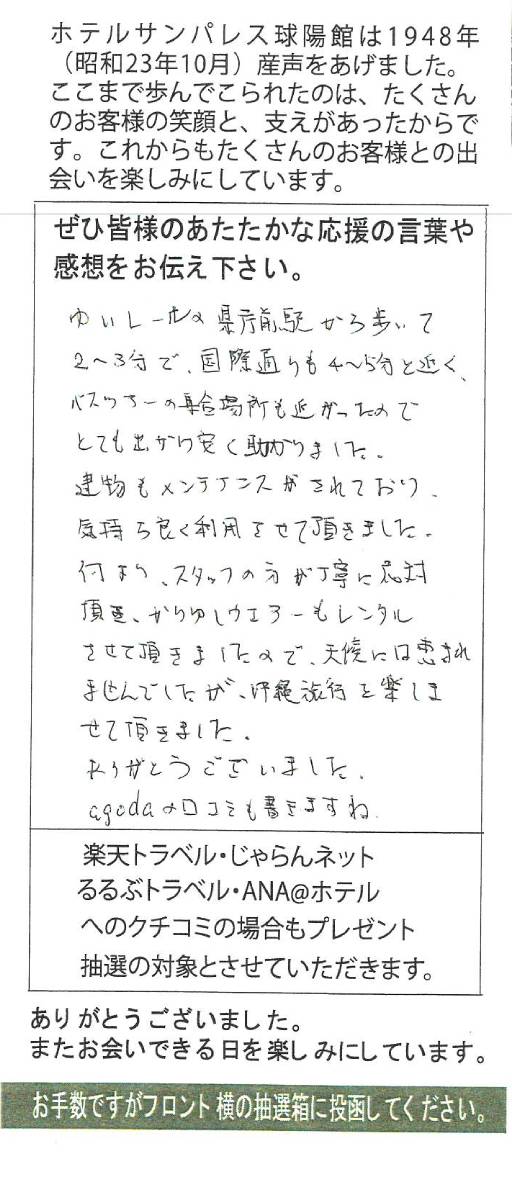 ホテルサンパレス球陽館は1948年
（昭和23年10月）産声をあげました。
ここまで歩んでこられたのは、たくさん
のお客様の笑顔と、支えがあったからで
す。これからもたくさんのお客様との出
会いを楽しみにしています。
ぜひ皆様のあたたかな応援の言葉や
感想をお伝え下さい。
ゆいレールの県庁前駅から歩いて
2〜3分で、国際通りも4〜5分と近く、
バスツアーの集合場所も近かったので
とても出かけ安く助かりました。
建物もメンテナンスがされており、
気持ち良く利用させて頂きました。
何より、スタッフの方が丁寧に応対
頂き、かりゆしウエアーもレンタル
させて頂きましたので、天候には恵まれ
ませんでしたが、沖縄旅行を楽しま
せて頂きました。
ありがとうございました。
agodaの口コミも書きますね。
楽天トラベル・じゃらんネット
るるぶトラベル・ANA@ホテル
へのクチコミの場合もプレゼント
抽選の対象とさせていただきます。
ありがとうございました。
またお会いできる日を楽しみにしています。
お手数ですがフロント横の抽選箱に投函してください。